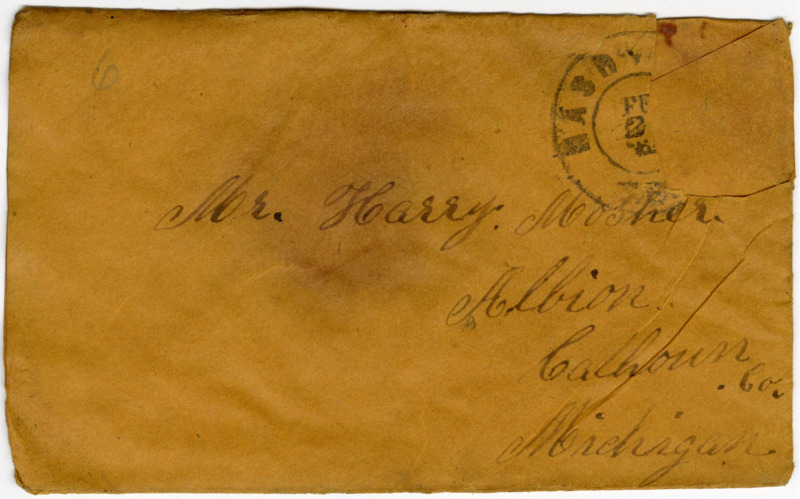 6
NASHV
FE
2
Mr. Harry. Mosher.
Albion.
Calhoun
Co.
Michigan.